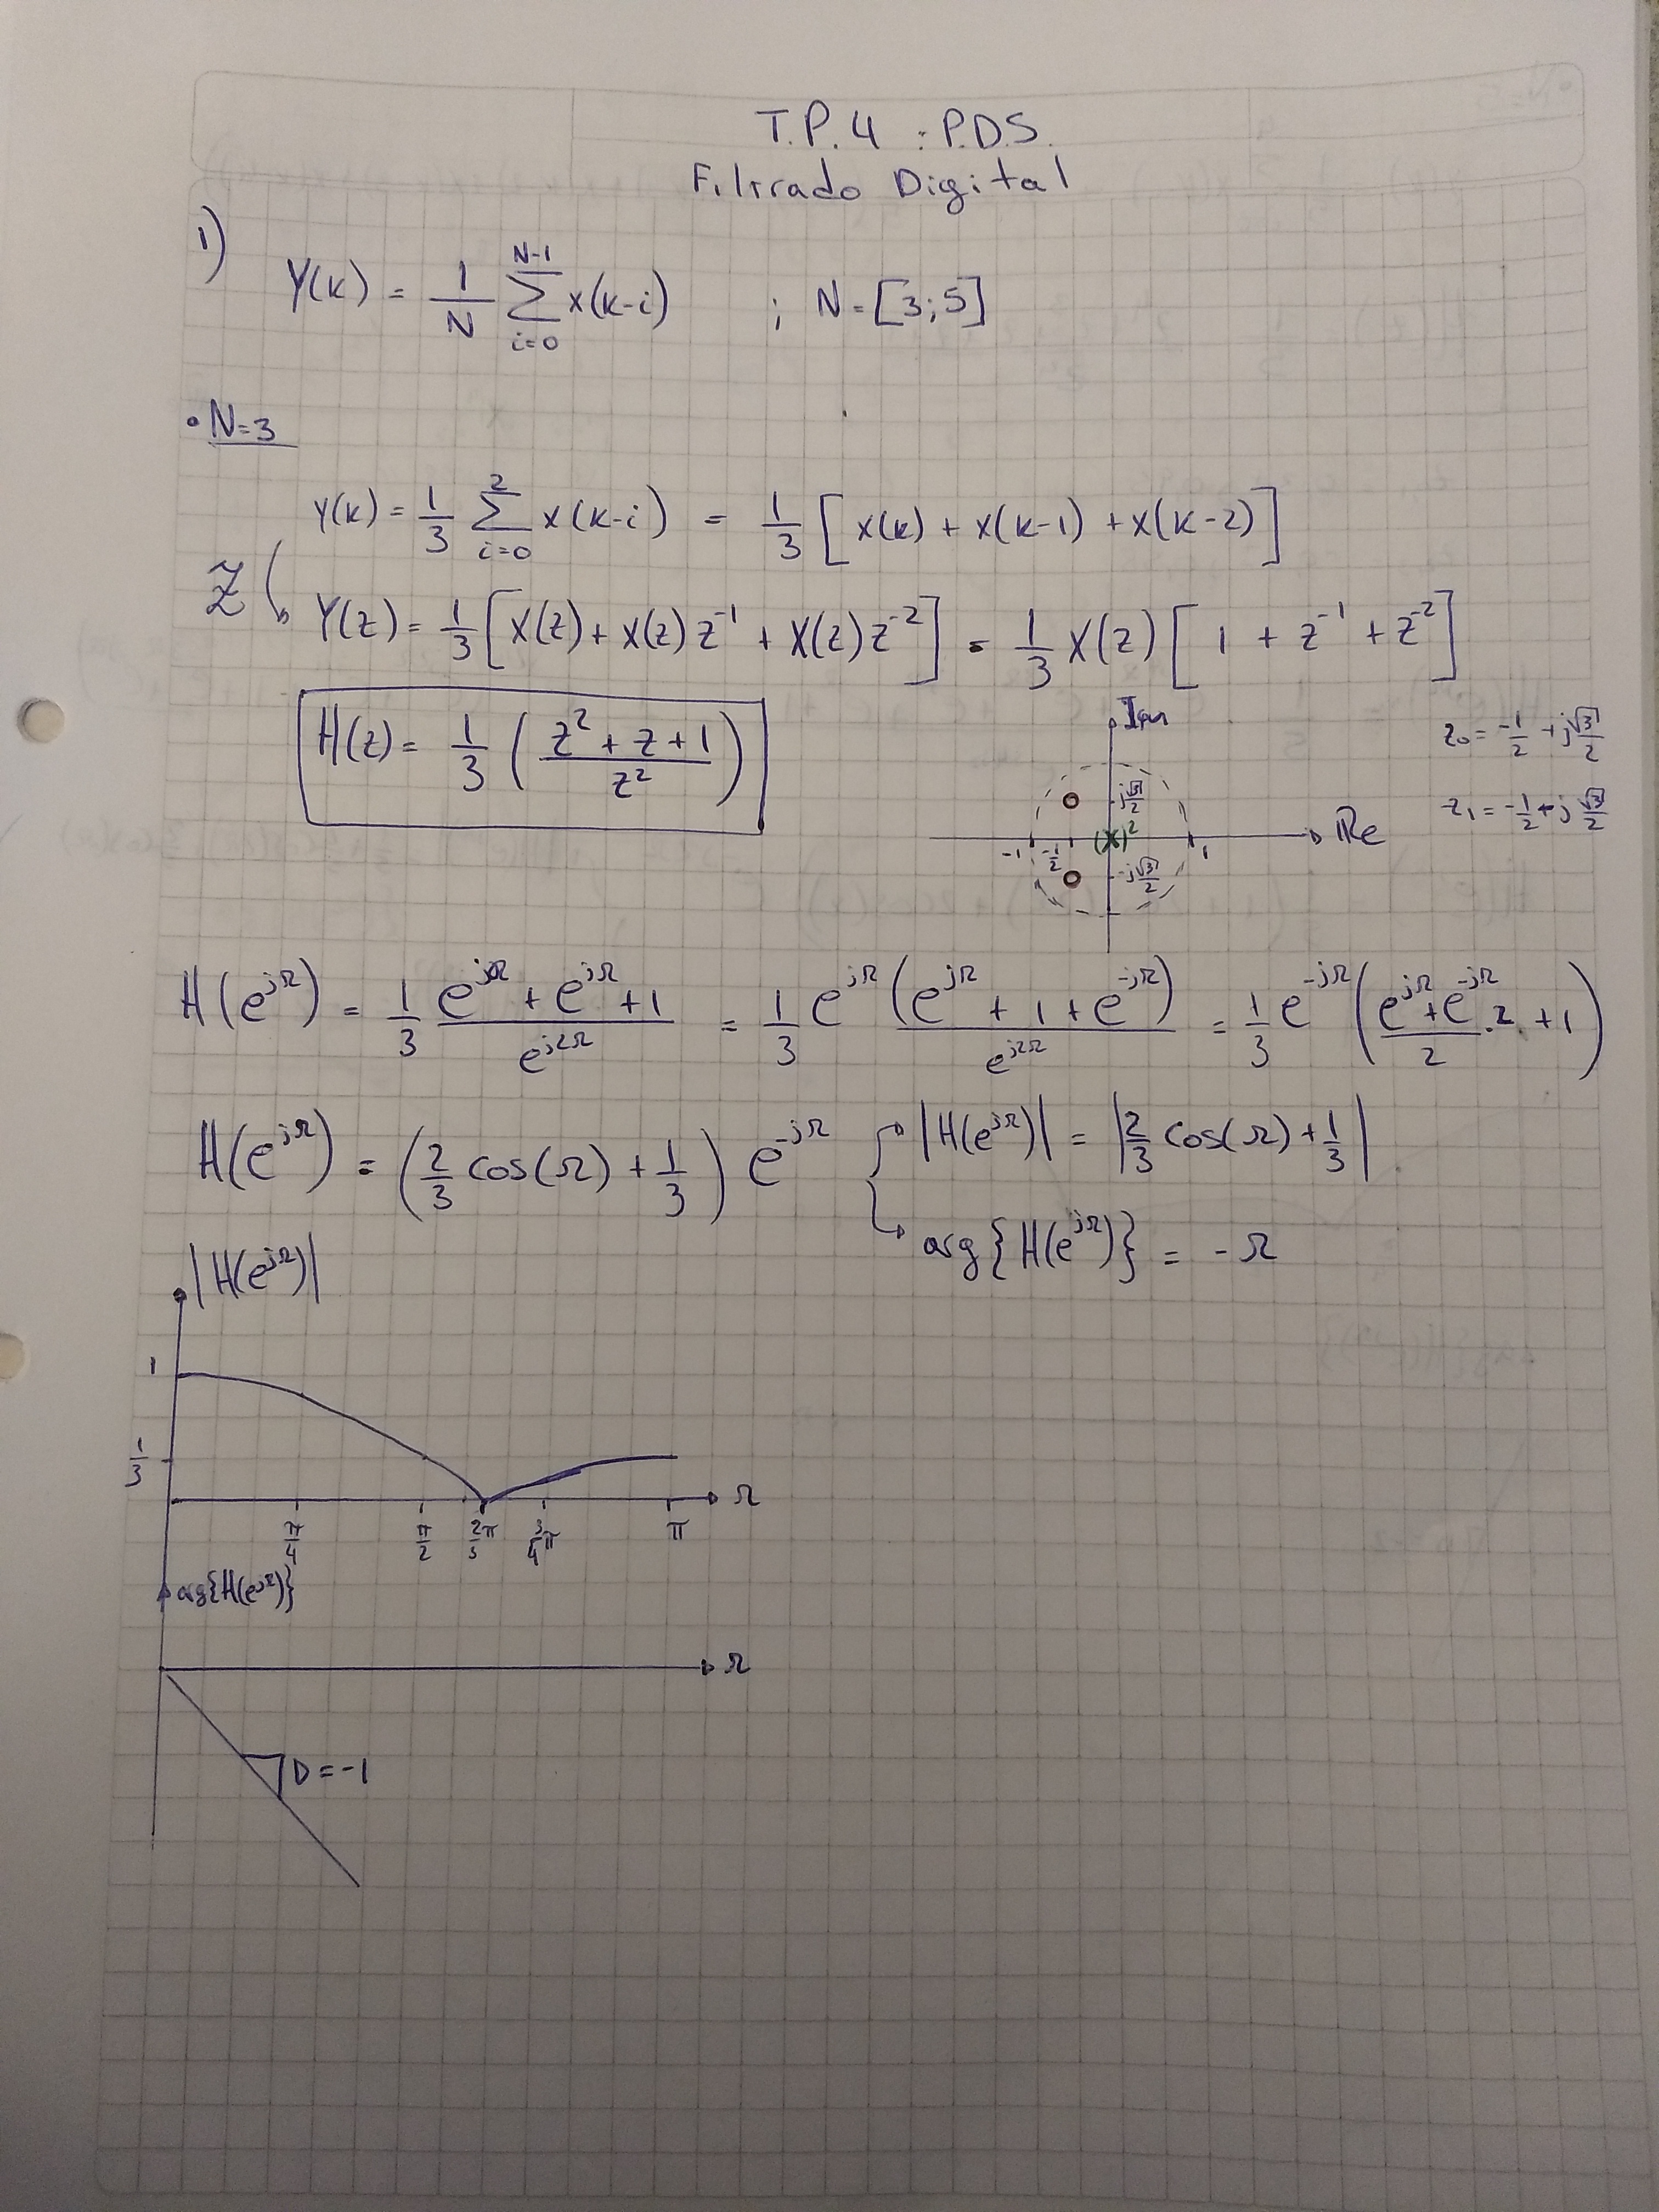 T.P.4 : P.D.S.
Filtrado Digital
1) Y(k) = 1/N ∑_{i=0}^{N-1} x(k-i) ; N = [3;5]
• N=3
Y(k) = 1/3 ∑_{i=0}^{2} x(k-i) = 1/3 [x(k) + x(k-1) + x(k-2)]
Z
Y(z) = 1/3 [X(z) + X(z) z^{-1} + X(z) z^{-2}] = 1/3 X(z) [1 + z^{-1} + z^{-2}]
H(z) = 1/3 ((z^2 + z + 1)/z^2)
Im
j√3/2
(X)^2
Re
-1 -1/2 1
-j√3/2
z_0 = -1/2 + j√3/2
z_1 = -1/2 + j√3/2
H(e^{jΩ}) = 1/3 (e^{jΩ} + e^{jΩ} + 1)/e^{j2Ω} = 1/3 e^{jΩ} (e^{jΩ} + 1 + e^{-jΩ})/e^{j2Ω} = 1/3 e^{-jΩ} ((e^{jΩ} + e^{-jΩ})/2 . 2 + 1)
H(e^{jΩ}) = (2/3 cos(Ω) + 1/3) e^{-jΩ}
|H(e^{jΩ})| = |2/3 cos(Ω) + 1/3|
arg{H(e^{jΩ})} = -Ω
|H(e^{jΩ})|
1
1/3
Ω
π/4 π/2 2/3π 3/4π π
arg{H(e^{jΩ})}
Ω
D = -1